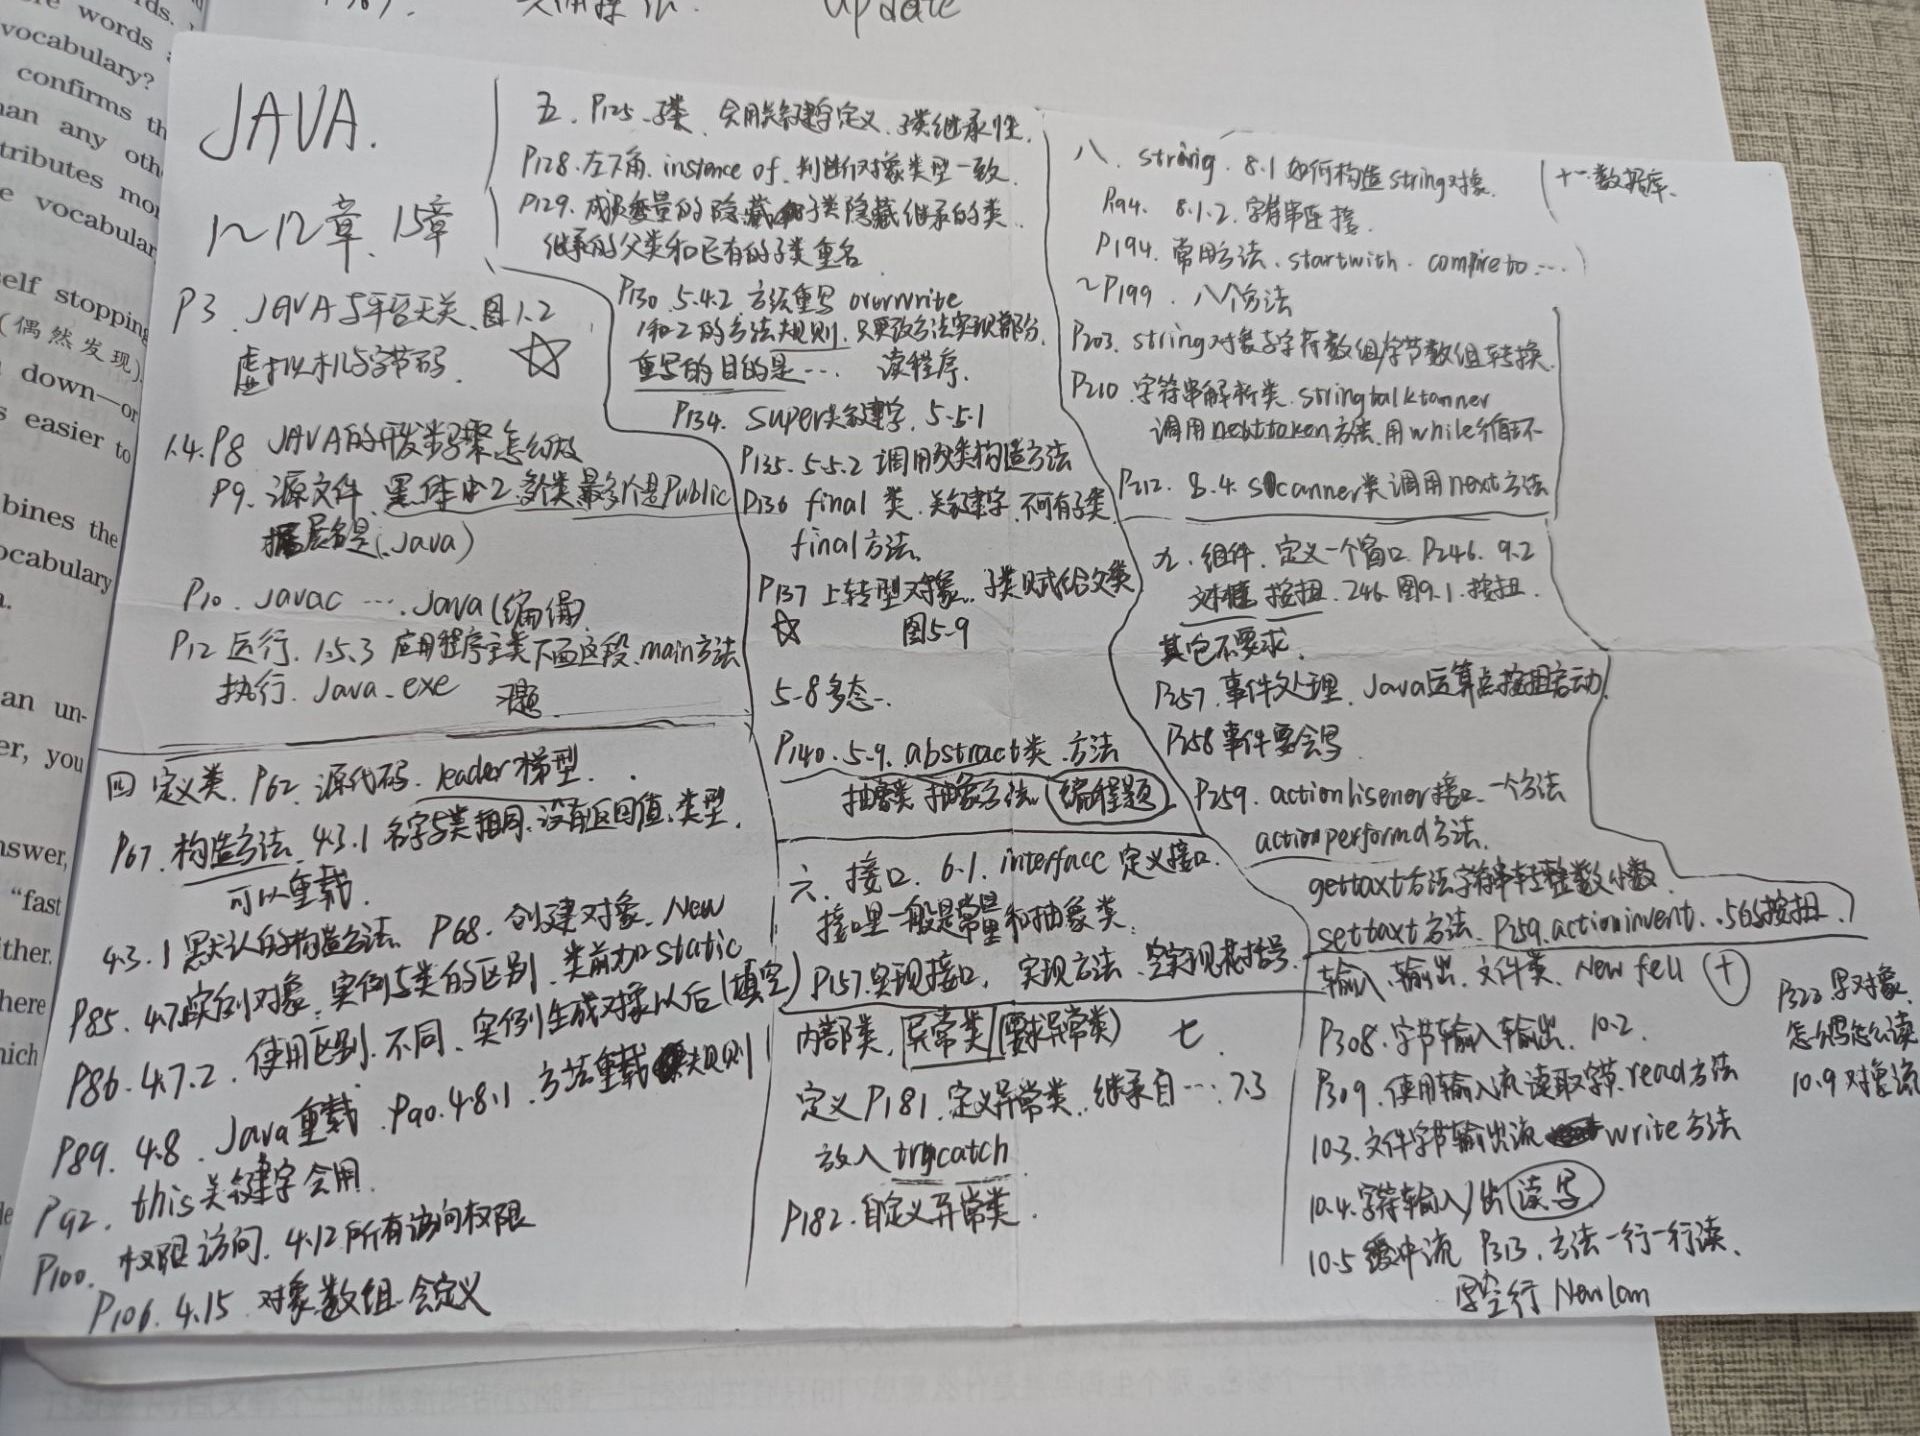 update
words
vocabulary?
confirms th
an any oth
tributes mo
e vocabular
self stopping
(偶然发现)
down—or
s easier to
bines the
ocabulary
an un-
er, you
nswer,
"fast
ther.
here
nich
JAVA.
1~12章、15章
P3. JAVA与平台无关、图1.2
虚拟机与字节码. ☆
1.4.P8 JAVA的开发步骤怎么做
P9. 源文件、黑体中2.多个类最多1个是Public
扩展名是(.Java)
P10. Javac … Java(编译)
P12 运行. 1.5.3 应用程序主类下面这段、main方法
执行. Java.exe 习题
四 定义类. P62. 源代码. leader梯型.
P67. 构造方法. 4.3.1 名字与类相同、没有返回值、类型.
可以重载.
4.3.1 默认的构造方法. P68. 创建对象. New
P85. 4.7实例对象: 实例与类的区别. 类前加static
P86. 4.7.2. 使用区别. 不同、实例生成对象以后(填空)
P89. 4.8. Java重载. P90. 4.8.1. 方法重载规则
P92. this关键字会用.
P100. 权限访问. 4.12所有访问权限
P106. 4.15 对象数组.会定义
五. P125. 子类、会用关键字定义. 子类继承性.
P128.左下角. instance of. 判断对象类型一致.
P129. 成员变量的隐藏 子类隐藏继承的类.
继承的父类和已有的子类重名.
P130. 5.4.2 方法重写 overwrite
1和2的方法规则. 只更改方法实现部分.
重写的目的是… 读程序.
P134. super关键字. 5.5.1
P135. 5.5.2 调用父类构造方法
P136 final 类. 关键字. 不可有子类
final方法.
P137 上转型对象. 子类赋给父类
☆ 图5-9
5-8多态.
P140. 5.9. abstract类. 方法
抽象类 抽象方法. (编程题)
六. 接口. 6.1. interface 定义接口.
接口里一般是常量和抽象类.
P157.实现接口, 实现方法. 空实现花括号.
内部类, 异常类 (要求异常类) 七.
定义 P181. 定义异常类. 继承自… 7.3
放入trycatch
P182. 自定义异常类.
八. string. 8.1 如何构造string对象.
P194. 8.1.2. 字符串连接.
P194. 常用方法. startwith. compireto …
~P199. 八个方法
P203. string对象与字符数组/字节数组转换.
P210. 字符串解析类. stringtalktanner
调用nexttoken方法. 用while循环
P212. 8.4. scanner类调用next方法
十一.数据库.
九. 组件. 定义一个窗口. P246. 9.2
文本框 按扭. 246. 图9.1. 按扭.
其它不要求.
P257. 事件处理. Java运算点按扭启动.
P258 事件要会写.
P259. actionlisener接口. 一个方法
actionperformd方法.
gettaxt方法字符串转整数小数.
settaxt方法. P259.actioninvent. .565按扭.
输入、输出、文件类. New fell (十)
P308. 字节输入输出. 10.2.
P309. 使用输入流读取字节. read方法
10.3. 文件字节输出流 write方法
10.4. 字符输入/出 (读写)
10.5 缓冲流 P313. 方法一行一行读、
写空行 Newlam
P323 写对象.
怎么写怎么读
10.9 对象流